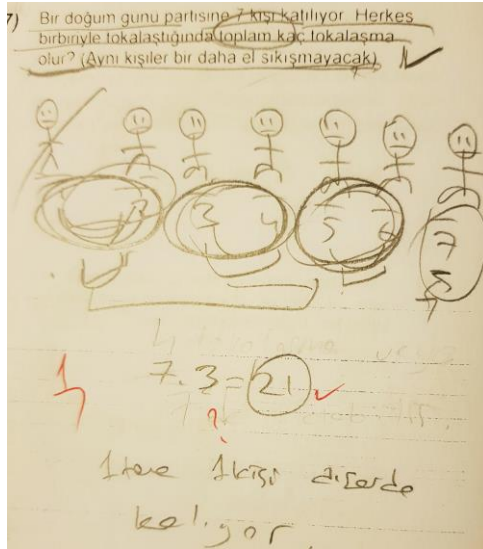 7) Bir doğum günü partisine 7 kişi katılıyor. Herkes
birbiriyle tokalaştığında toplam kaç tokalaşma
olur? (Aynı kişiler bir daha el sıkışmayacak)
2 3 4 5 6 7
7.3=21
?
1 tane 1 kişi dışarda
kalıyor.